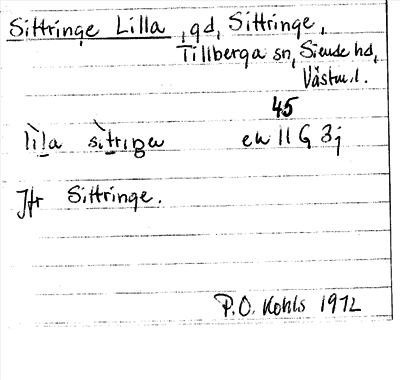 Sittringe Lilla, gd, Sittringe,
Tillberga sn, Siende hd,
Västm.l.
45
lìl̲a sìt̲riŋe ek 11 G 3j
Jfr Sittringe.
P.O. Kohls 1972